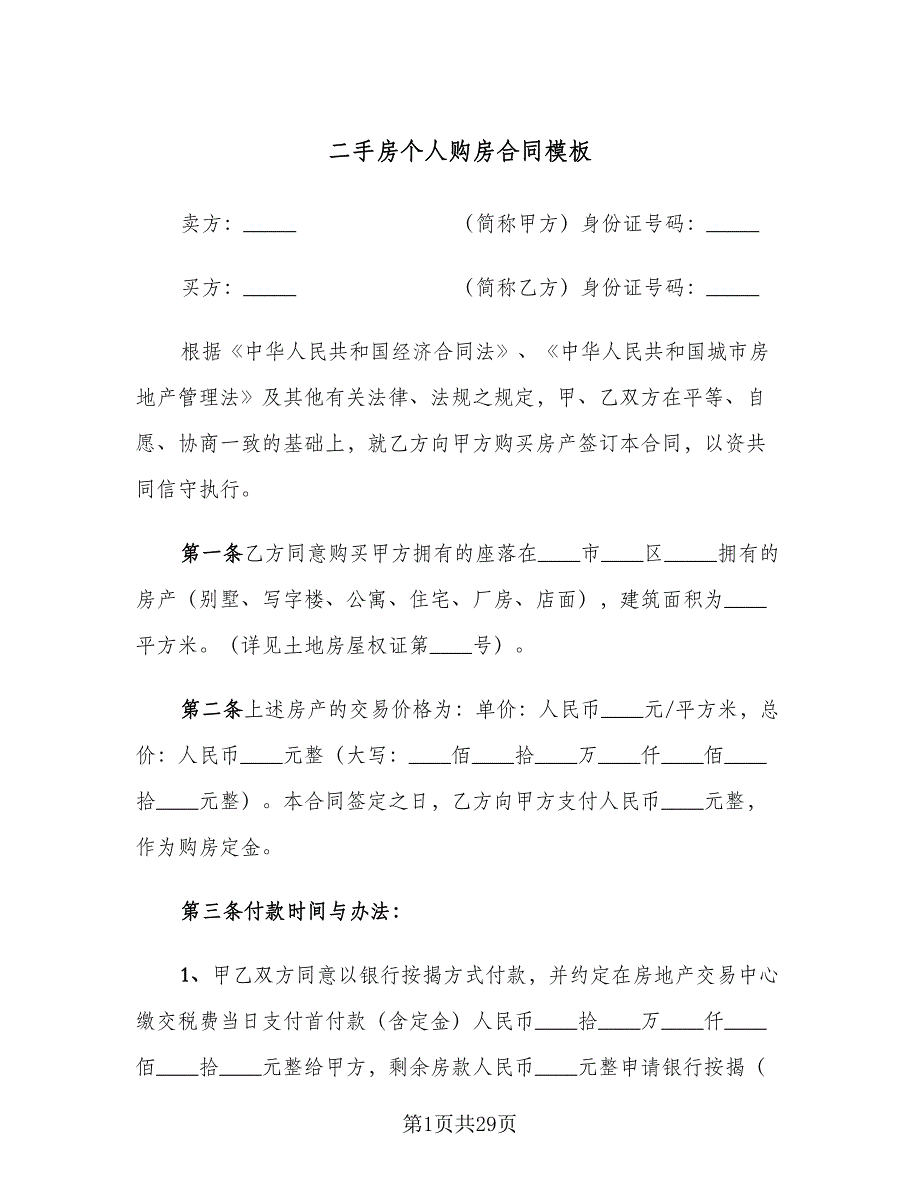 二手房个人购房合同模板
卖方：_____ （简称甲方）身份证号码：_____
买方：_____ （简称乙方）身份证号码：_____
根据《中华人民共和国经济合同法》、《中华人民共和国城市房
地产管理法》及其他有关法律、法规之规定，甲、乙双方在平等、自
愿、协商一致的基础上，就乙方向甲方购买房产签订本合同，以资共
同信守执行。
第一条乙方同意购买甲方拥有的座落在____市____区_____拥有的
房产（别墅、写字楼、公寓、住宅、厂房、店面），建筑面积为____
平方米。（详见土地房屋权证第____号）。
第二条上述房产的交易价格为：单价：人民币____元/平方米，总
价：人民币____元整（大写：____佰____拾____万____仟____佰____
拾____元整）。本合同签定之日，乙方向甲方支付人民币____元整，
作为购房定金。
第三条付款时间与办法：
1、甲乙双方同意以银行按揭方式付款，并约定在房地产交易中心
缴交税费当日支付首付款（含定金）人民币____拾____万____仟____
佰____拾____元整给甲方，剩余房款人民币____元整申请银行按揭（
第1页共29页